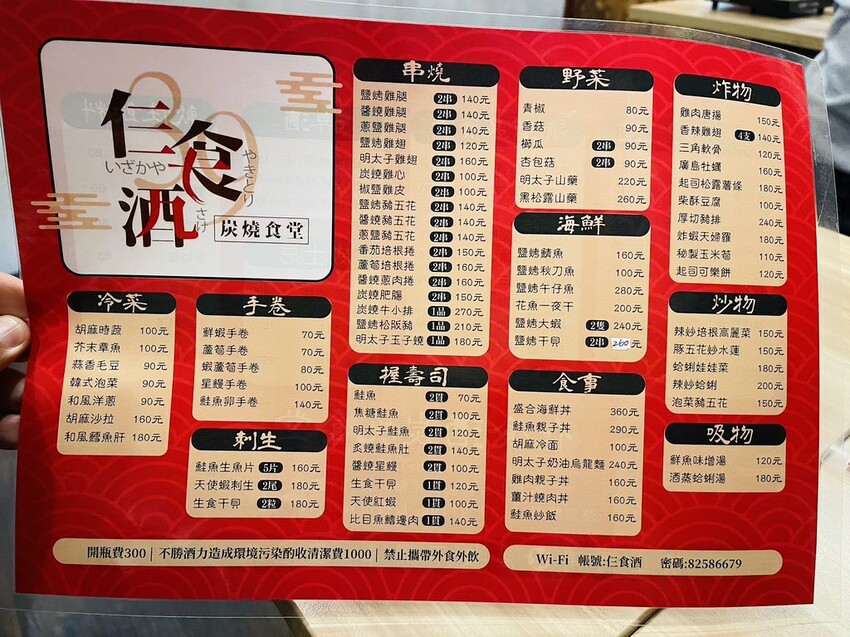 30
仨食酒
いざかや
やきとり
さけ
炭燒食堂
串燒
鹽烤雞腿 2串 140元
醬燒雞腿 2串 140元
蔥鹽雞腿 2串 140元
鹽烤雞翅 2串 120元
明太子雞翅 2串 160元
炭燒雞心 2串 100元
椒鹽雞皮 2串 100元
鹽烤豬五花 2串 140元
醬燒豬五花 2串 140元
蔥鹽豬五花 2串 140元
番茄培根捲 2串 150元
蘆筍培根捲 2串 160元
醬燒蔥肉捲 2串 160元
炭燒肥腸 2串 150元
炭燒牛小排 1品 270元
鹽烤松阪豬 1品 210元
明太子玉子燒 1品 180元
野菜
青椒 80元
香菇 90元
櫛瓜 2串 90元
杏包菇 2串 90元
明太子山藥 220元
黑松露山藥 260元
炸物
雞肉唐揚 150元
香辣雞翅 4支 140元
三角軟骨 120元
廣島牡蠣 160元
起司松露薯條 180元
柴酥豆腐 100元
厚切豬排 240元
炸蝦天婦羅 180元
秘製玉米筍 110元
起司可樂餅 120元
海鮮
鹽烤鯖魚 160元
鹽烤秋刀魚 100元
鹽烤午仔魚 280元
花魚一夜干 200元
鹽烤大蝦 2隻 240元
鹽烤干貝 2串 260元
冷菜
胡麻時蔬 100元
芥末章魚 100元
蒜香毛豆 90元
韓式泡菜 90元
和風洋蔥 90元
胡麻沙拉 160元
和風鱈魚肝 180元
手卷
鮮蝦手卷 70元
蘆筍手卷 70元
蝦蘆筍手卷 80元
星鰻手卷 100元
鮭魚卵手卷 140元
刺生
鮭魚生魚片 5片 160元
天使蝦刺生 2尾 180元
生食干貝 2粒 180元
握壽司
鮭魚 2貫 70元
焦糖鮭魚 2貫 100元
明太子鮭魚 2貫 120元
炙燒鮭魚肚 2貫 140元
醬燒星鰻 2貫 100元
生食干貝 1貫 120元
天使紅蝦 1貫 100元
比目魚鰭邊肉 1貫 140元
食事
盛合海鮮丼 360元
鮭魚親子丼 290元
胡麻冷面 100元
明太子奶油烏龍麵 240元
雞肉親子丼 160元
薑汁燒肉丼 160元
鮭魚炒飯 160元
炒物
辣炒培根高麗菜 150元
豚五花炒水蓮 150元
蛤蜊娃娃菜 180元
辣炒蛤蜊 200元
泡菜豬五花 150元
吸物
鮮魚味增湯 120元
酒蒸蛤蜊湯 180元
開瓶費300| 不勝酒力造成環境污染酌收清潔費1000| 禁止攜帶外食外飲
Wi-Fi 帳號:仨食酒 密碼:82586679